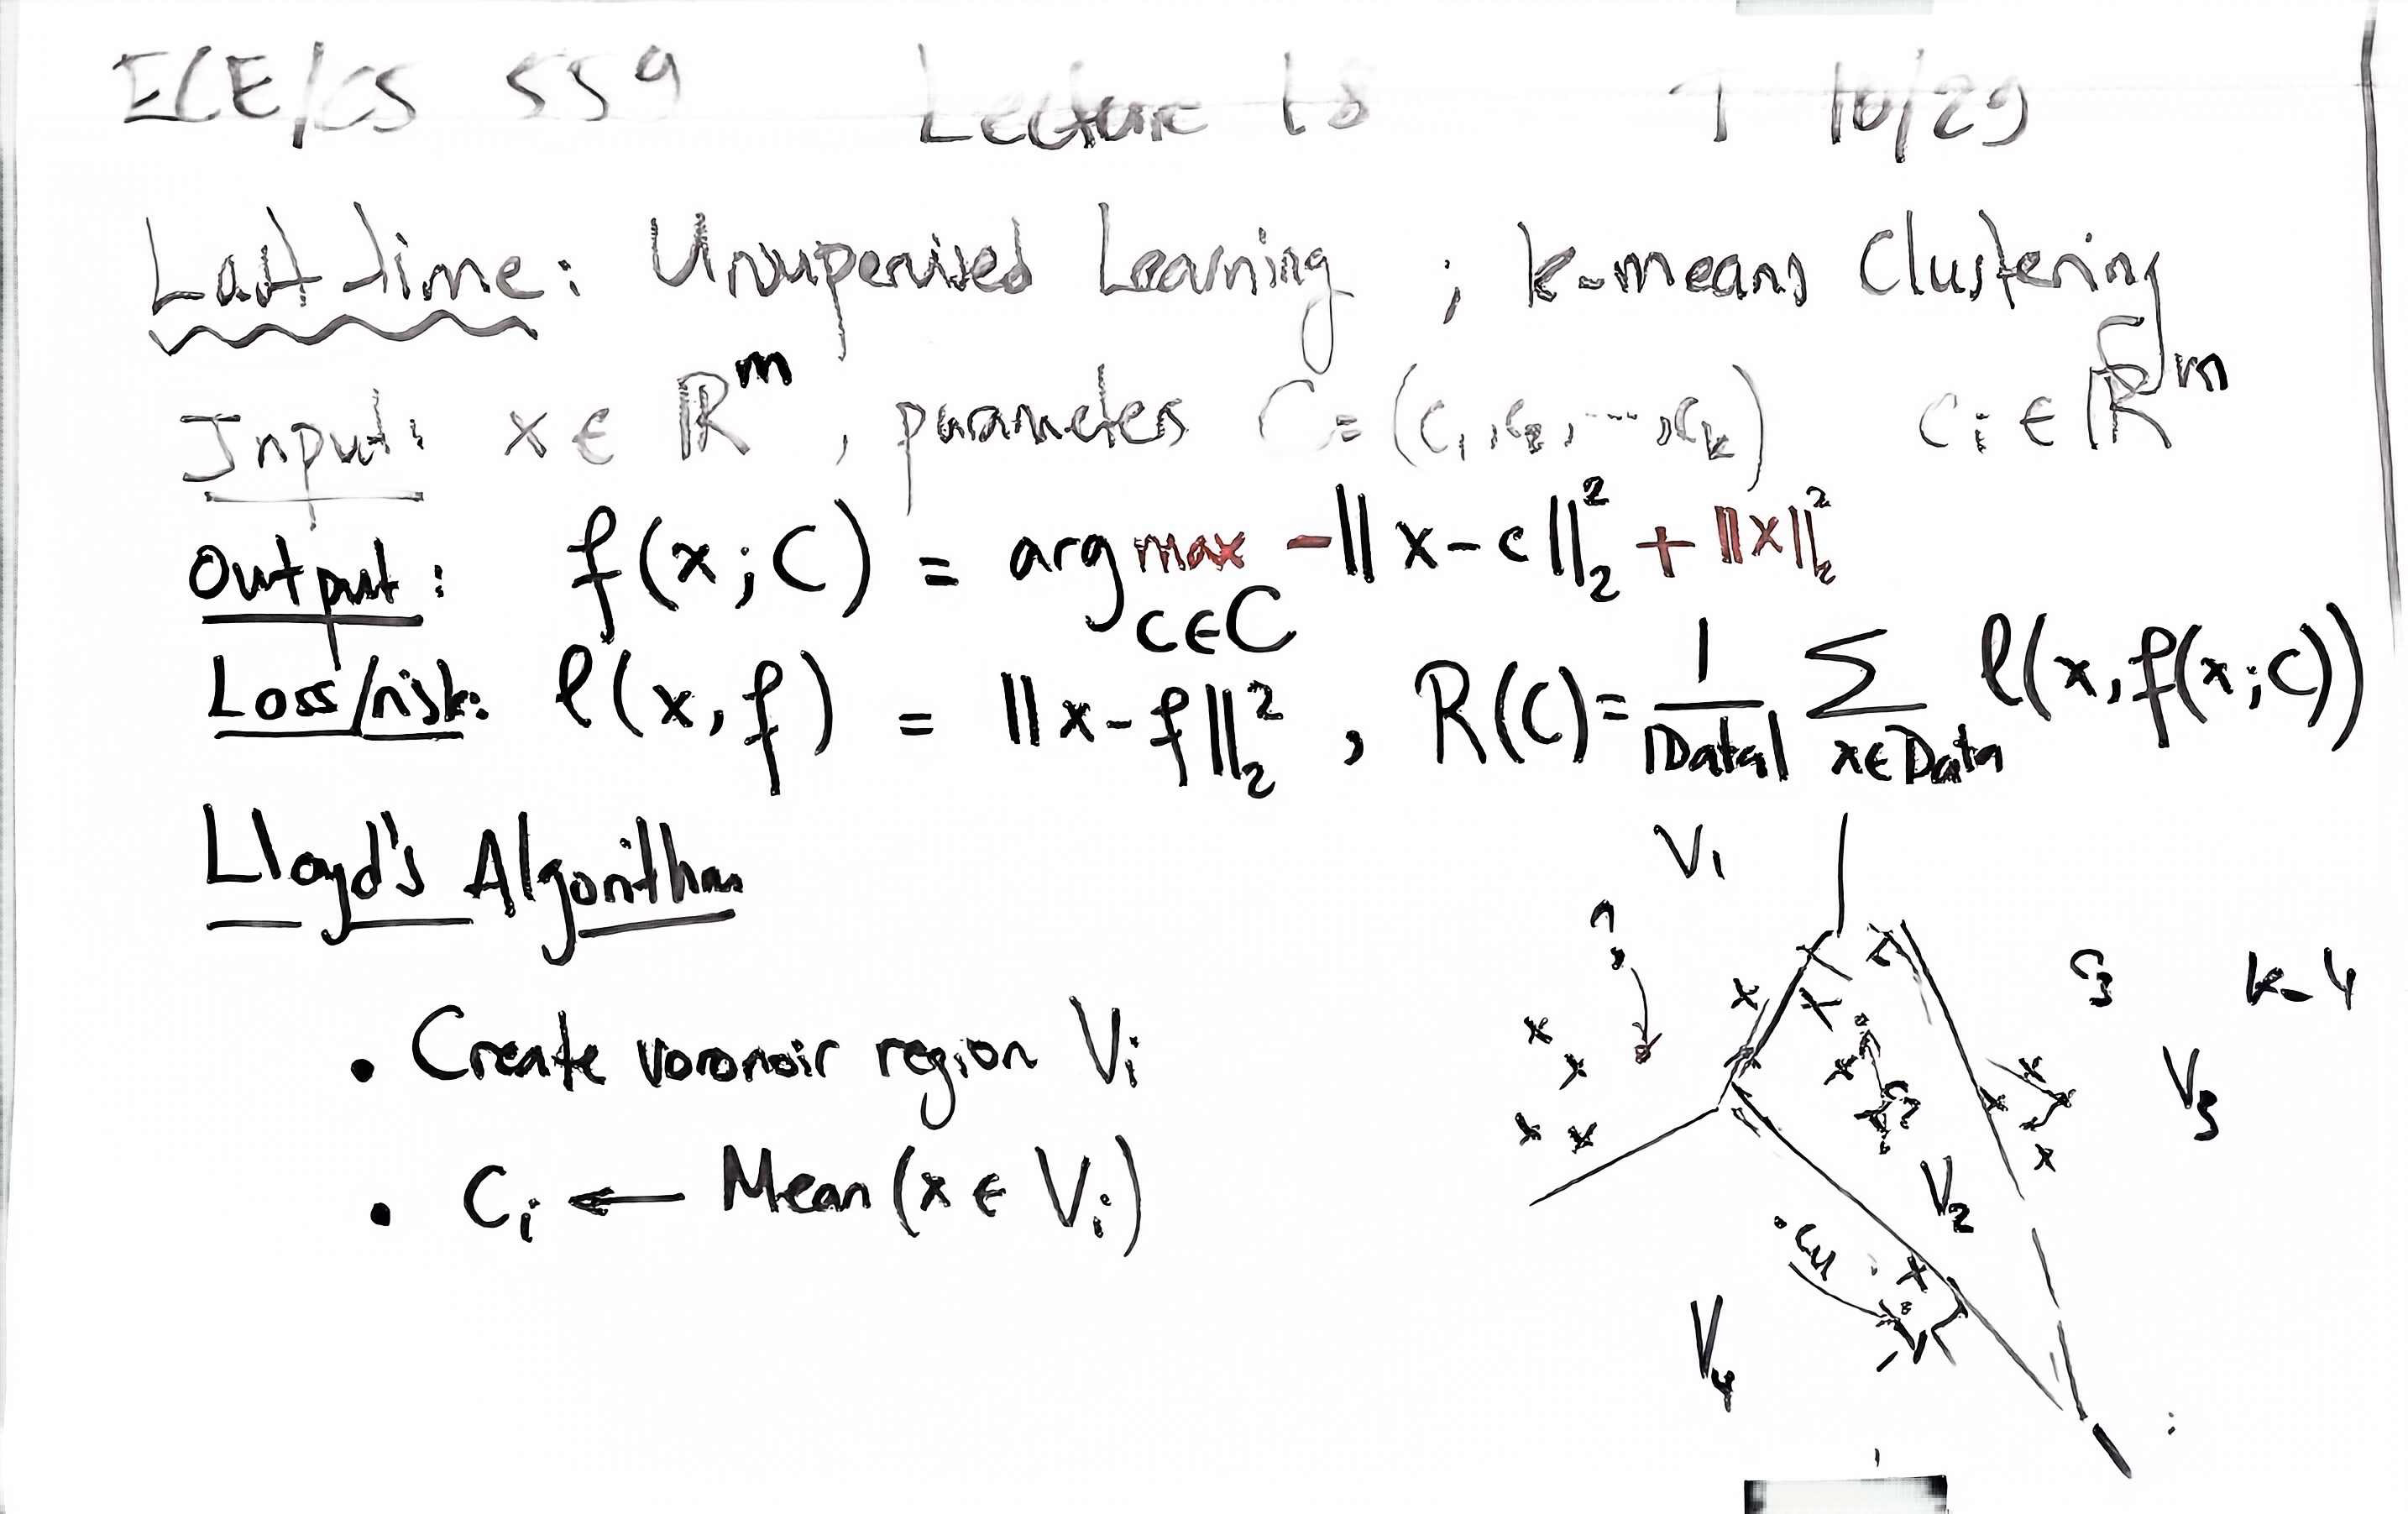 ECE/CS 559 Lecture 18 T 10/29
Last time: Unsupervised Learning ; k-means Clustering
Input: x ∈ ℝ^m , parameters C = (c₁, c₂, ..., c_k) c_i ∈ ℝ^m
Output: f(x; C) = arg max_{c∈C} -||x-c||₂² + ||x||₂²
Loss/risk: ℓ(x, f) = ||x-f||₂² , R(C) = 1/|Data| Σ_{x∈Data} ℓ(x, f(x; C))
Lloyd's Algorithm
V₁
C₃ k=4
• Create voronoir region V_i
C₂ V₃
• C_i ← Mean(x ∈ V_i)
V₂
C₄
V₄